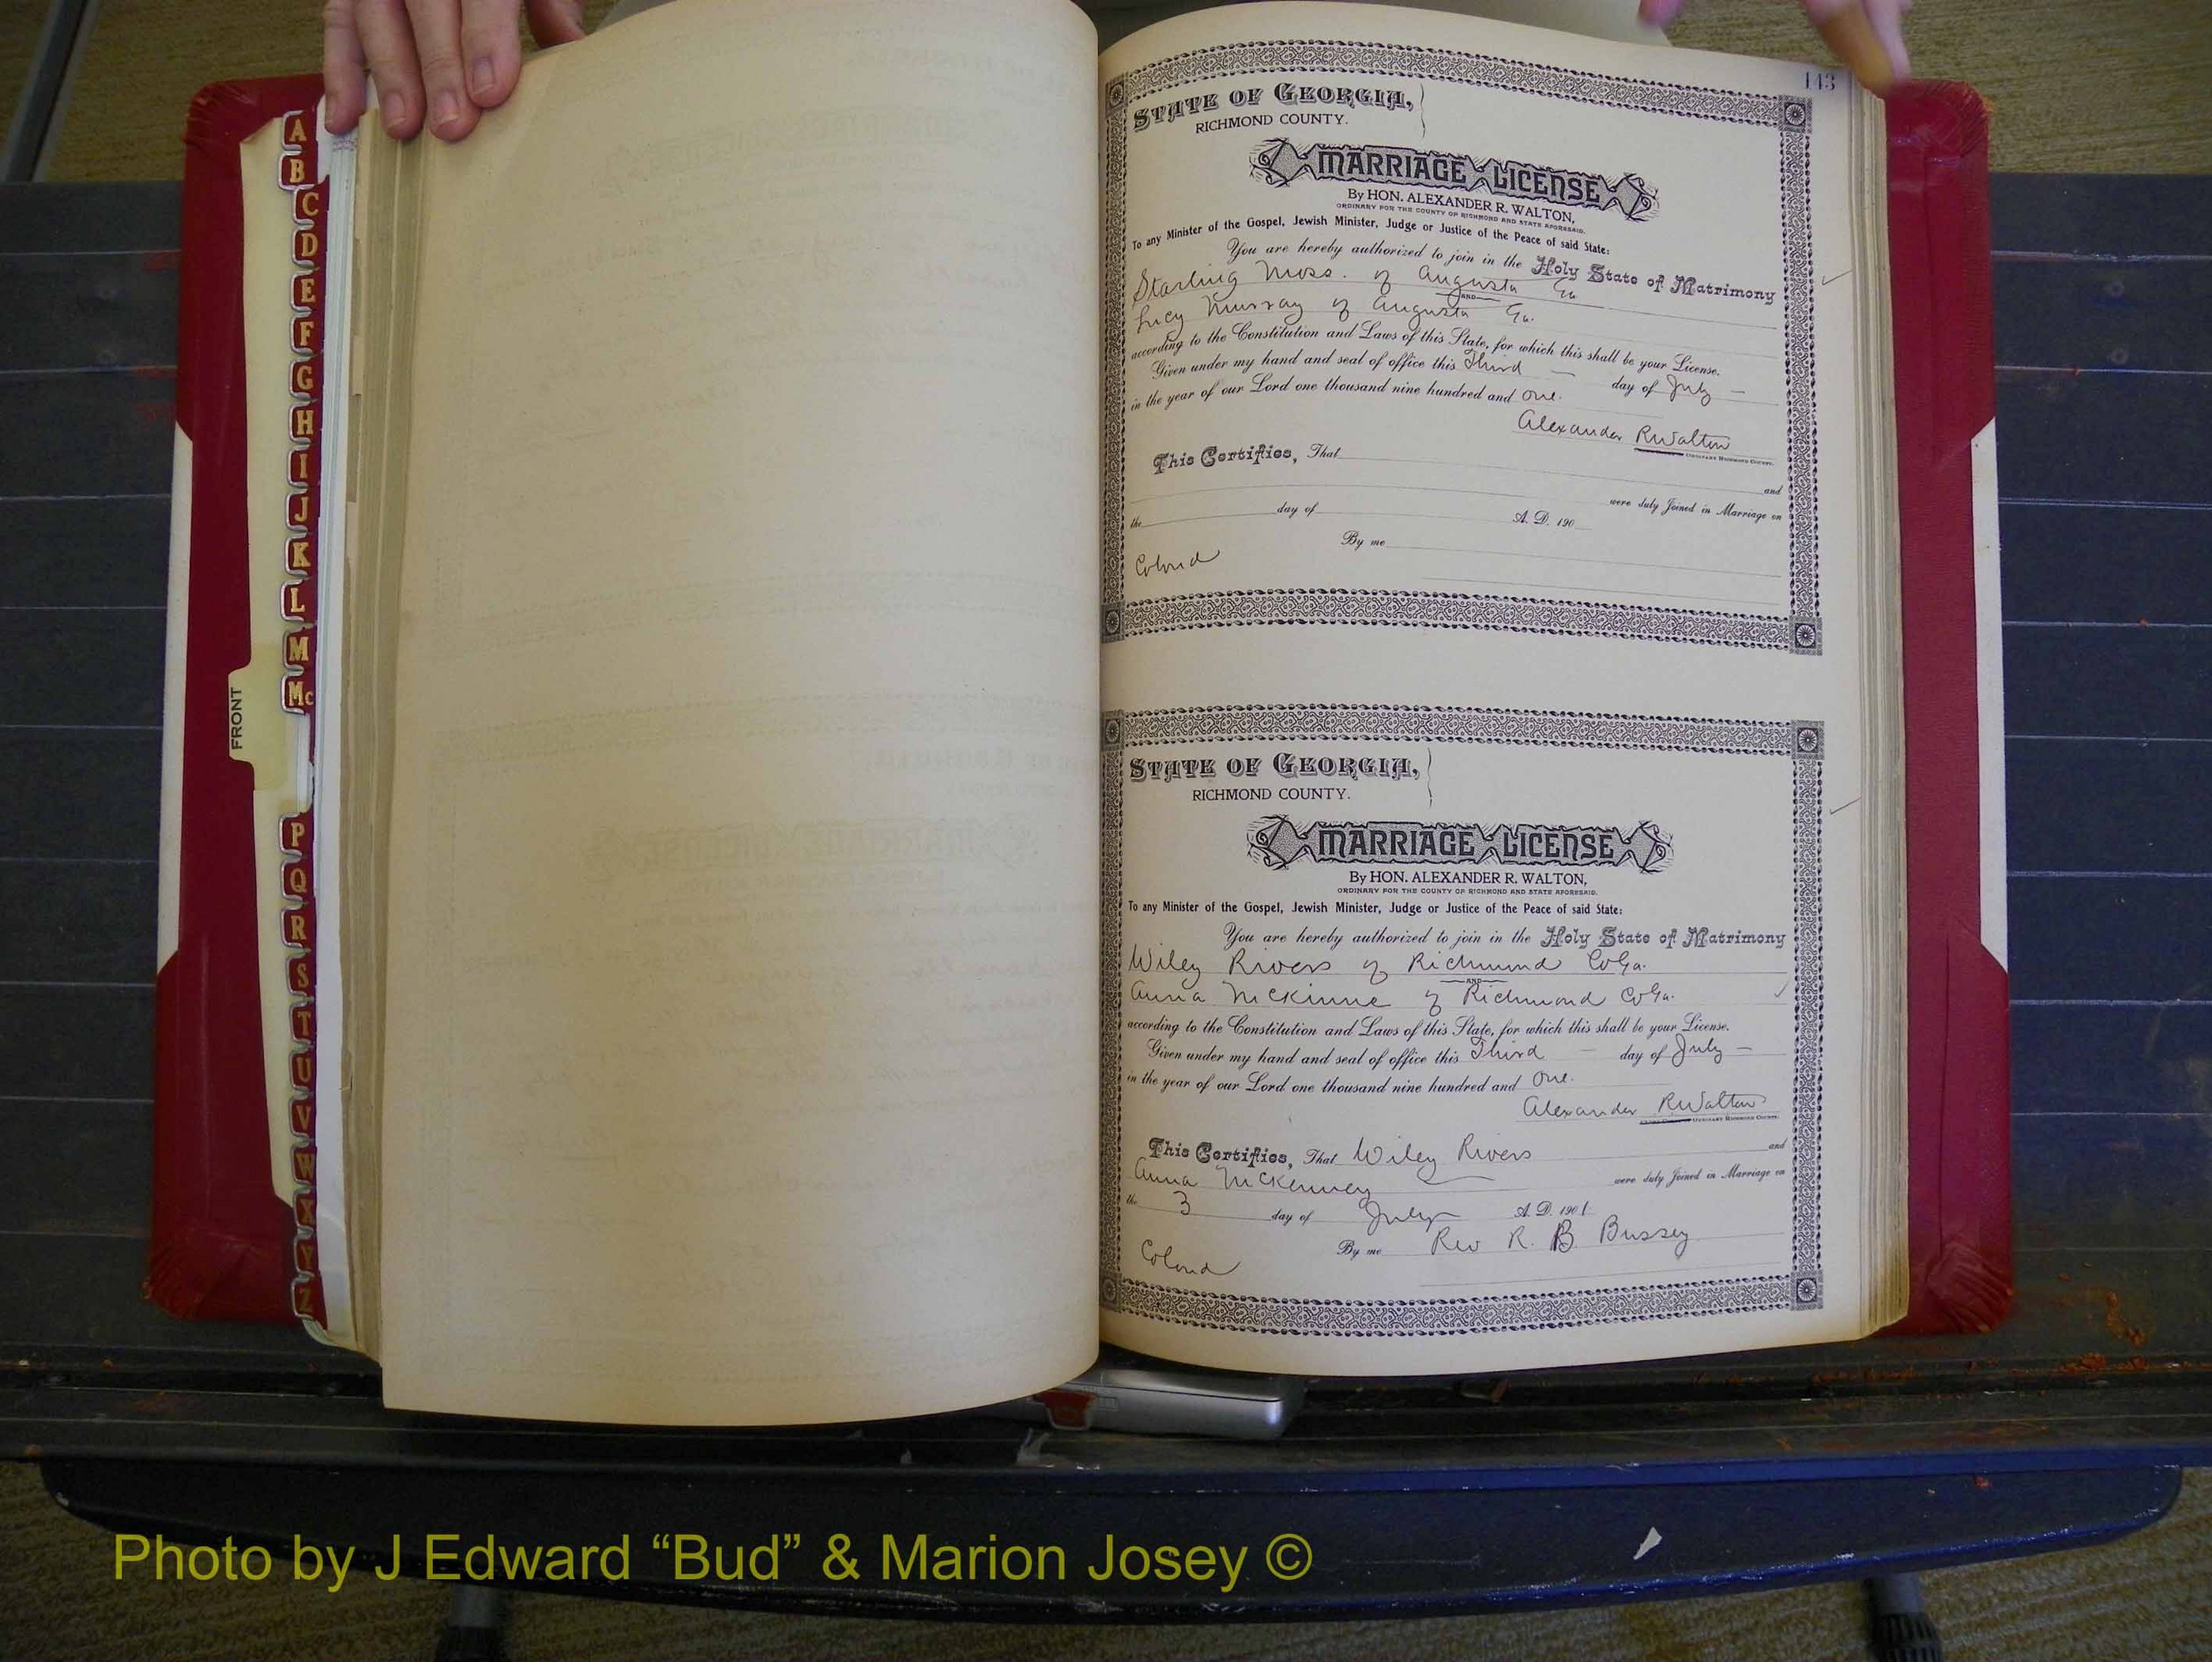 A
B
C
D
E
F
G
H
I
J
K
L
M
Mc
FRONT
P
Q
R
S
T
U
V
W
X
Y
Z
143
STATE OF GEORGIA,
RICHMOND COUNTY.
MARRIAGE LICENSE
By HON. ALEXANDER R. WALTON,
ORDINARY FOR THE COUNTY OF RICHMOND AND STATE AFORESAID.
To any Minister of the Gospel, Jewish Minister, Judge or Justice of the Peace of said State:
You are hereby authorized to join in the Holy State of Matrimony
Starling Moss. of Augusta Ga
AND
Lucy Murray of Augusta Ga.
according to the Constitution and Laws of this State, for which this shall be your License.
Given under my hand and seal of office this Third day of July
in the year of our Lord one thousand nine hundred and one.
Alexander R Walton
ORDINARY RICHMOND COUNTY.
This Certifies, That
and
were duly Joined in Marriage on
the day of A. D. 190
By me
Colord
STATE OF GEORGIA,
RICHMOND COUNTY.
MARRIAGE LICENSE
By HON. ALEXANDER R. WALTON,
ORDINARY FOR THE COUNTY OF RICHMOND AND STATE AFORESAID.
To any Minister of the Gospel, Jewish Minister, Judge or Justice of the Peace of said State:
You are hereby authorized to join in the Holy State of Matrimony
Wiley Rivers of Richmond Co Ga.
AND
Anna McKinne of Richmond Co Ga.
according to the Constitution and Laws of this State, for which this shall be your License.
Given under my hand and seal of office this Third day of July
in the year of our Lord one thousand nine hundred and One.
Alexander R Walton
ORDINARY RICHMOND COUNTY.
This Certifies, That Wiley Rivers and
Anna McKenney were duly Joined in Marriage on
the 3 day of July A. D. 1901
By me Rev R. B. Bussey
Colord
Photo by J Edward “Bud” & Marion Josey ©